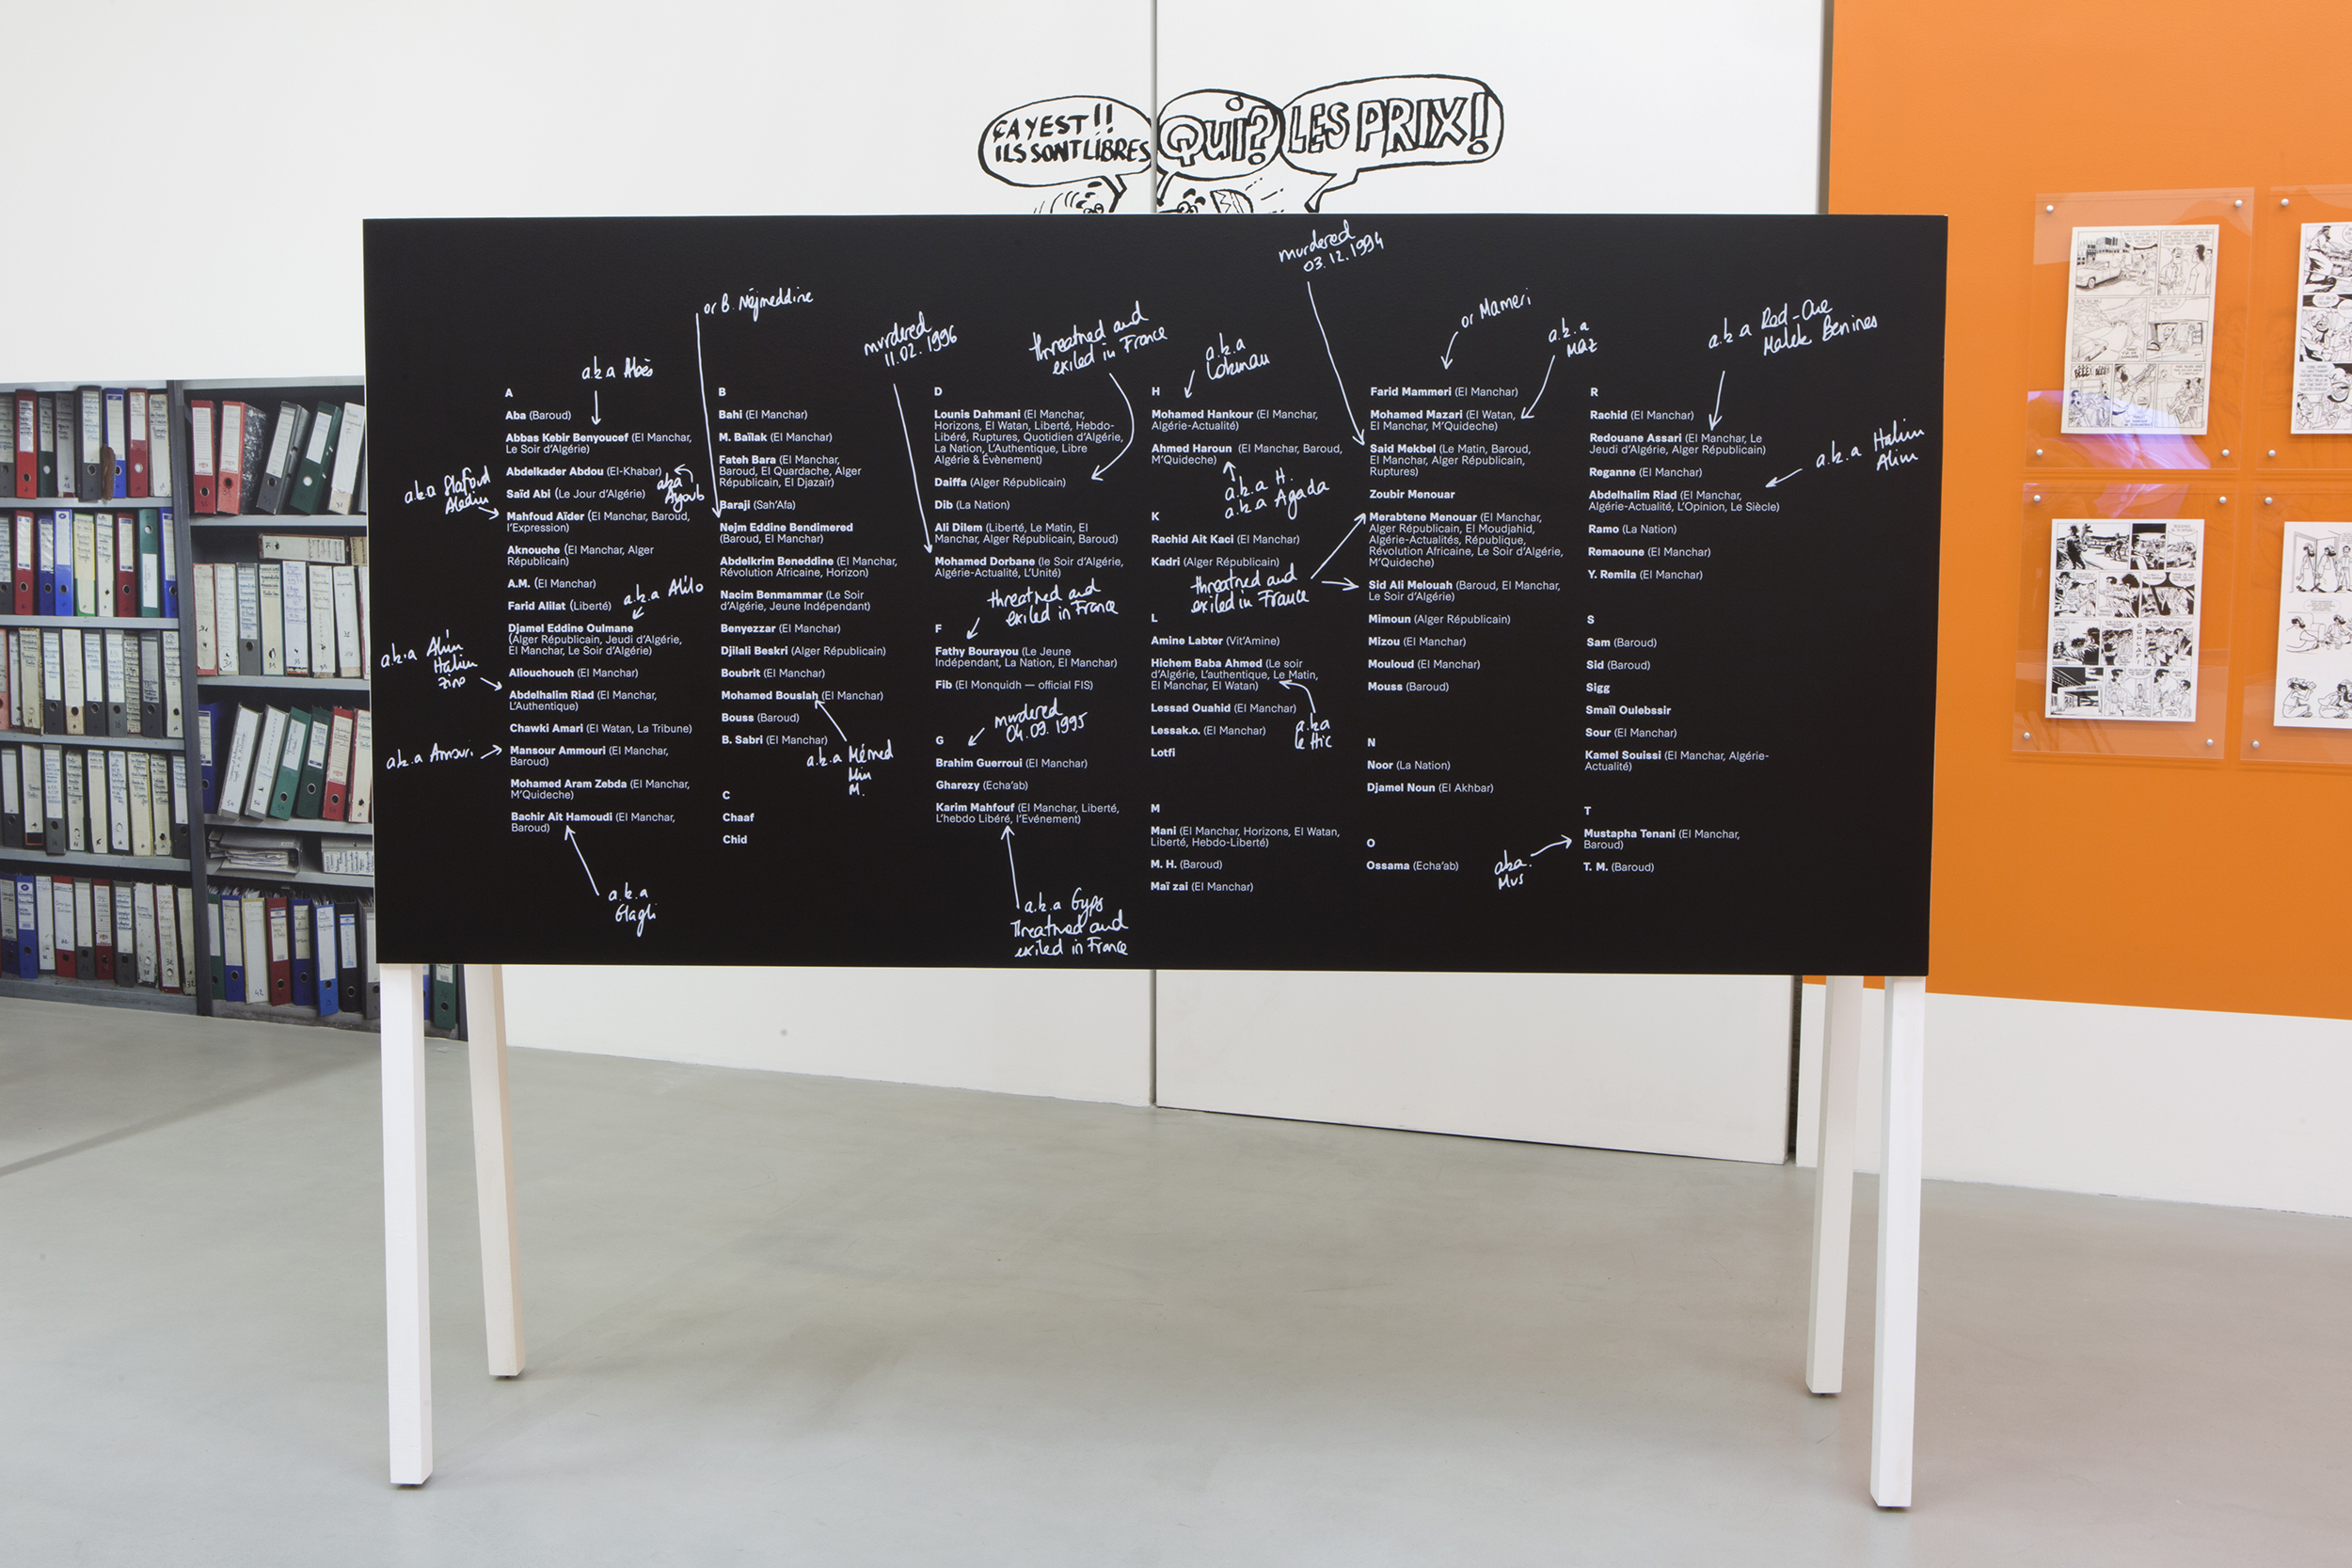 ÇA YEST!!
ILS SONT LIBRES
QUI?
LES PRIX!
murdered
03.12.1994
or B. Néjmeddine
murdered
11.02.1996
threatned and
exiled in France
a.k.a
Lokman
or Mameri
a.k.a
Maz
a.k.a Red-One
Malek Benines
a.k.a Halim
Alim
a.k.a Abès
A
Aba (Baroud)
Abbas Kebir Benyoucef (El Manchar,
Le Soir d'Algérie)
Abdelkader Abdou (El-Khabar)
aka
Ayoub
Saïd Abi (Le Jour d'Algérie)
a.k.a
Mahfoud Aïder (El Manchar, Baroud,
l'Expression)
Aknouche (El Manchar, Alger
Républicain)
A.M. (El Manchar)
Farid Alilat (Liberté)
a.k.a Alilo
Djamel Eddine Oulmane
(Alger Républicain, Jeudi d'Algérie,
El Manchar, Le Soir d'Algérie)
Aliouchouch (El Manchar)
a.k.a Alim
Halim
Zino
Abdelhalim Riad (El Manchar,
L'Authentique)
Chawki Amari (El Watan, La Tribune)
a.k.a Amouri
Mansour Ammouri (El Manchar,
Baroud)
Mohamed Aram Zebda (El Manchar,
M'Quideche)
Bachir Ait Hamoudi (El Manchar,
Baroud)
a.k.a
B
Bahi (El Manchar)
M. Baïlak (El Manchar)
Fateh Bara (El Manchar,
Baroud, El Quardache, Alger
Républicain, El Djazaïr)
Baraji (Sah'Afa)
Nejm Eddine Bendimered
(Baroud, El Manchar)
Abdelkrim Beneddine (El Manchar,
Révolution Africaine, Horizon)
Nacim Benmammar (Le Soir
d'Algérie, Jeune Indépendant)
Benyezzar (El Manchar)
Djilali Beskri (Alger Républicain)
Boubrit (El Manchar)
Mohamed Bouslah (El Manchar)
Bouss (Baroud)
B. Sabri (El Manchar)
a.k.a Mémed
Mim
M.
C
Chaaf
Chid
D
Lounis Dahmani (El Manchar,
Horizons, El Watan, Liberté, Hebdo-
Libéré, Ruptures, Quotidien d'Algérie,
La Nation, L'Authentique, Libre
Algérie & Évènement)
Daiffa (Alger Républicain)
Dib (La Nation)
Ali Dilem (Liberté, Le Matin, El
Manchar, Alger Républicain, Baroud)
Mohamed Dorbane (le Soir d'Algérie,
Algérie-Actualité, L'Unité)
threatned and
exiled in France
F
Fathy Bourayou (Le Jeune
Indépendant, La Nation, El Manchar)
Fib (El Monquidh — official FIS)
murdered
04.09.1995
G
Brahim Guerroui (El Manchar)
Gharezy (Echa'ab)
Karim Mahfouf (El Manchar, Liberté,
L'hebdo Libéré, l'Evénement)
a.k.a Gyps
Threatned and
exiled in France
H
Mohamed Hankour (El Manchar,
Algérie-Actualité)
Ahmed Haroun (El Manchar, Baroud,
M'Quideche)
a.k.a H.
a.k.a Agada
K
Rachid Ait Kaci (El Manchar)
Kadri (Alger Républicain)
threatned and
exiled in France
L
Amine Labter (Vit'Amine)
Hichem Baba Ahmed (Le soir
d'Algérie, L'authentique, Le Matin,
El Manchar, El Watan)
Lessad Ouahid (El Manchar)
Lessak.o. (El Manchar)
Lotfi
a.k.a
le Hic
M
Mani (El Manchar, Horizons, El Watan,
Liberté, Hebdo-Liberté)
M. H. (Baroud)
Maï zai (El Manchar)
Farid Mammeri (El Manchar)
Mohamed Mazari (El Watan,
El Manchar, M'Quideche)
Said Mekbel (Le Matin, Baroud,
El Manchar, Alger Républicain,
Ruptures)
Zoubir Menouar
Merabtene Menouar (El Manchar,
Alger Républicain, El Moudjahid,
Algérie-Actualités, République,
Révolution Africaine, Le Soir d'Algérie,
M'Quideche)
Sid Ali Melouah (Baroud, El Manchar,
Le Soir d'Algérie)
Mimoun (Alger Républicain)
Mizou (El Manchar)
Mouloud (El Manchar)
Mouss (Baroud)
N
Noor (La Nation)
Djamel Noun (El Akhbar)
O
Ossama (Echa'ab)
R
Rachid (El Manchar)
Redouane Assari (El Manchar, Le
Jeudi d'Algérie, Alger Républicain)
Reganne (El Manchar)
Abdelhalim Riad (El Manchar,
Algérie-Actualité, L'Opinion, Le Siècle)
Ramo (La Nation)
Remaoune (El Manchar)
Y. Remila (El Manchar)
S
Sam (Baroud)
Sid (Baroud)
Sigg
Smaïl Oulebssir
Sour (El Manchar)
Kamel Souissi (El Manchar, Algérie-
Actualité)
T
Mustapha Tenani (El Manchar,
Baroud)
T. M. (Baroud)
aka.
Mus